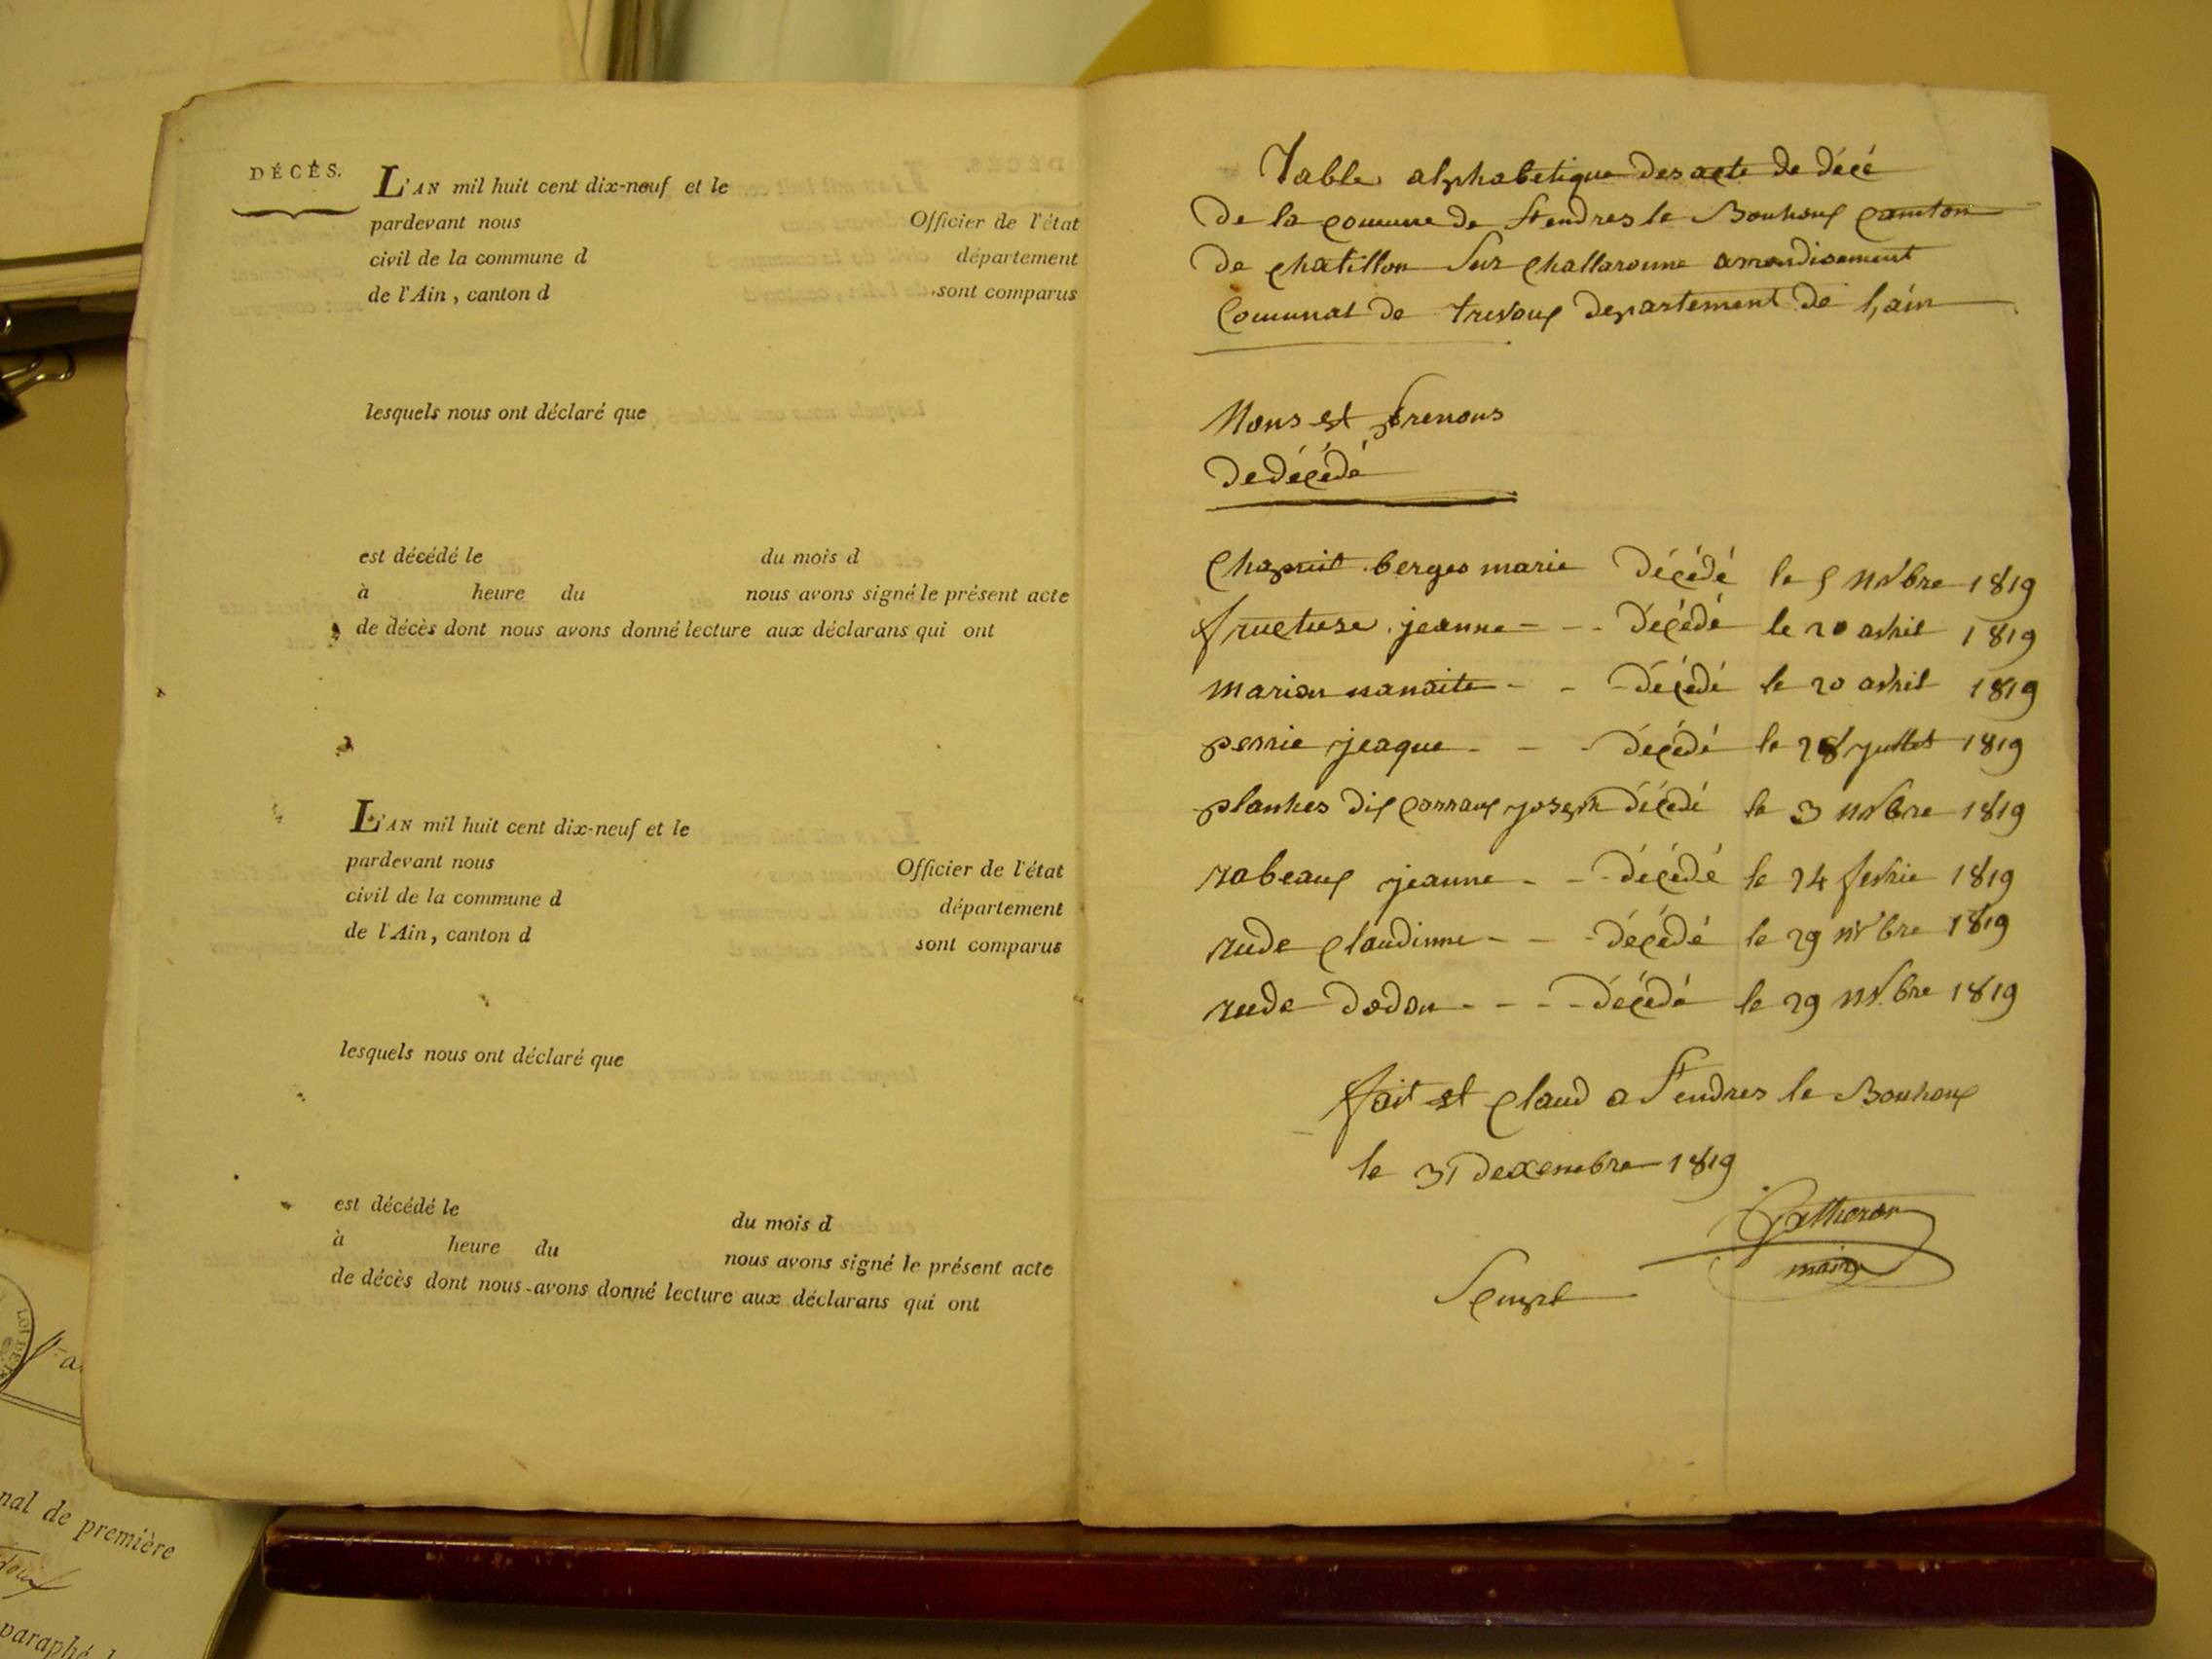 DÉCÈS.
L'AN mil huit cent dix-neuf et le
pardevant nous Officier de l'état
civil de la commune d département
de l'Ain, canton d sont comparus
lesquels nous ont déclaré que
est décédé le du mois d
à heure du nous avons signé le présent acte
de décès dont nous avons donné lecture aux déclarans qui ont
L'AN mil huit cent dix-neuf et le
pardevant nous Officier de l'état
civil de la commune d département
de l'Ain, canton d sont comparus
lesquels nous ont déclaré que
est décédé le du mois d
à heure du nous avons signé le présent acte
de décès dont nous avons donné lecture aux déclarans qui ont
Table alphabetique des acte de décé
de la commune de St endres le Bouhoux canton
de chatillon sur challaronne arrondisement
Communal de trevoux departement de l,ain
Noms et prenoms
de décédé
Chapuit berges marie décédé le 5 nvbre 1819
fructuse jeanne - - décédé le 20 avril 1819
marion nanaite - - décédé le 20 avril 1819
perrie jeaque - - - décédé le 28 jullet 1819
planhes dix corraux joseph décédé le 3 nvbre 1819
rabeaux jeanne - - décédé le 24 fevrie 1819
rude claudinne - - - décédé le 29 nvbre 1819
rude dodon - - - - décédé le 29 nvbre 1819
fait et claud a St endres le Bouhoux
le 31 dexembre 1819
maire
nal de première
paraphé